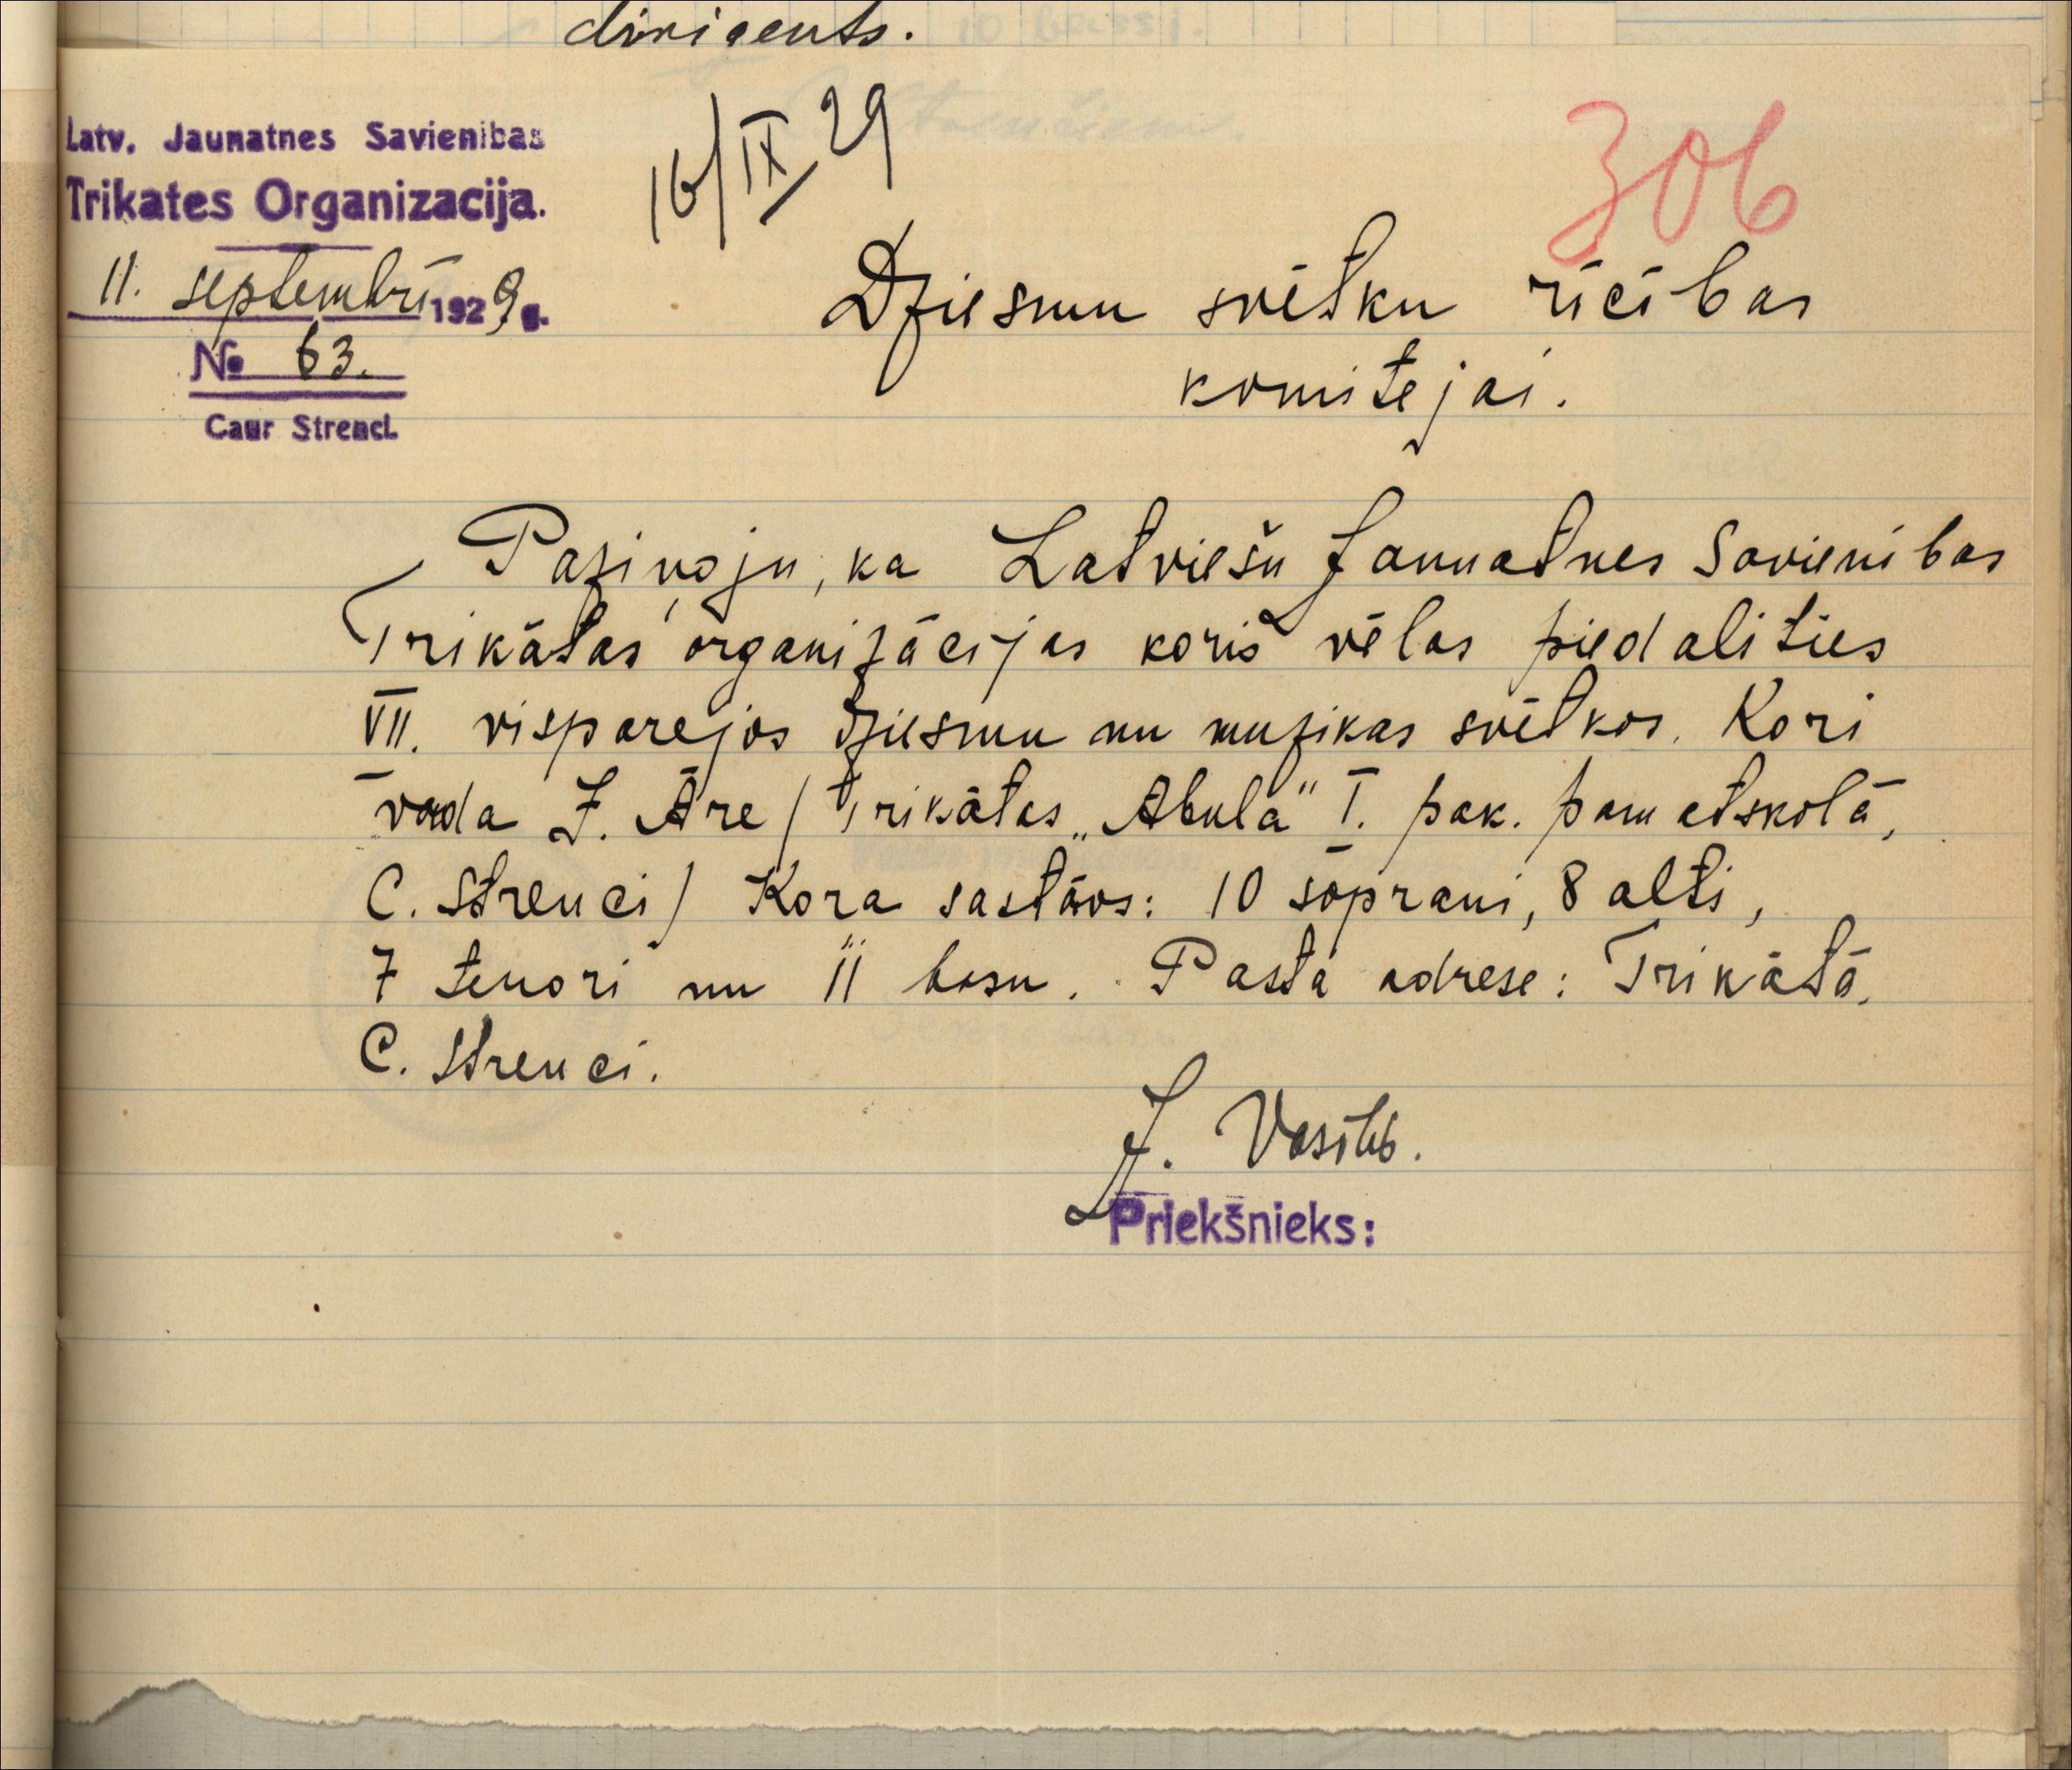 dirigents.
Latv. Jaunatnes Savienibas
Trikates Organizacija.
11. septembrī 1929 g.
№ 63.
Caur Strenci.
16/IX 29
306
Dziesmu svētku rīcības
komitejai.
Paziņoju, ka Latviešu Jaunatnes Savienības
Trikātas organizācijas koris vēlas piedalīties
VII. vispārejos dziesmu un muzikas svētkos. Kori
vada J. Āre / Trikātas „Abula" I. pak. pamatskolā,
C. Strenci / Kora sastāvs: 10 soprani, 8 alti,
7 tenori un 11 basu. Pasta adrese: Trikātā,
C. Strenci.
J.
Priekšnieks: